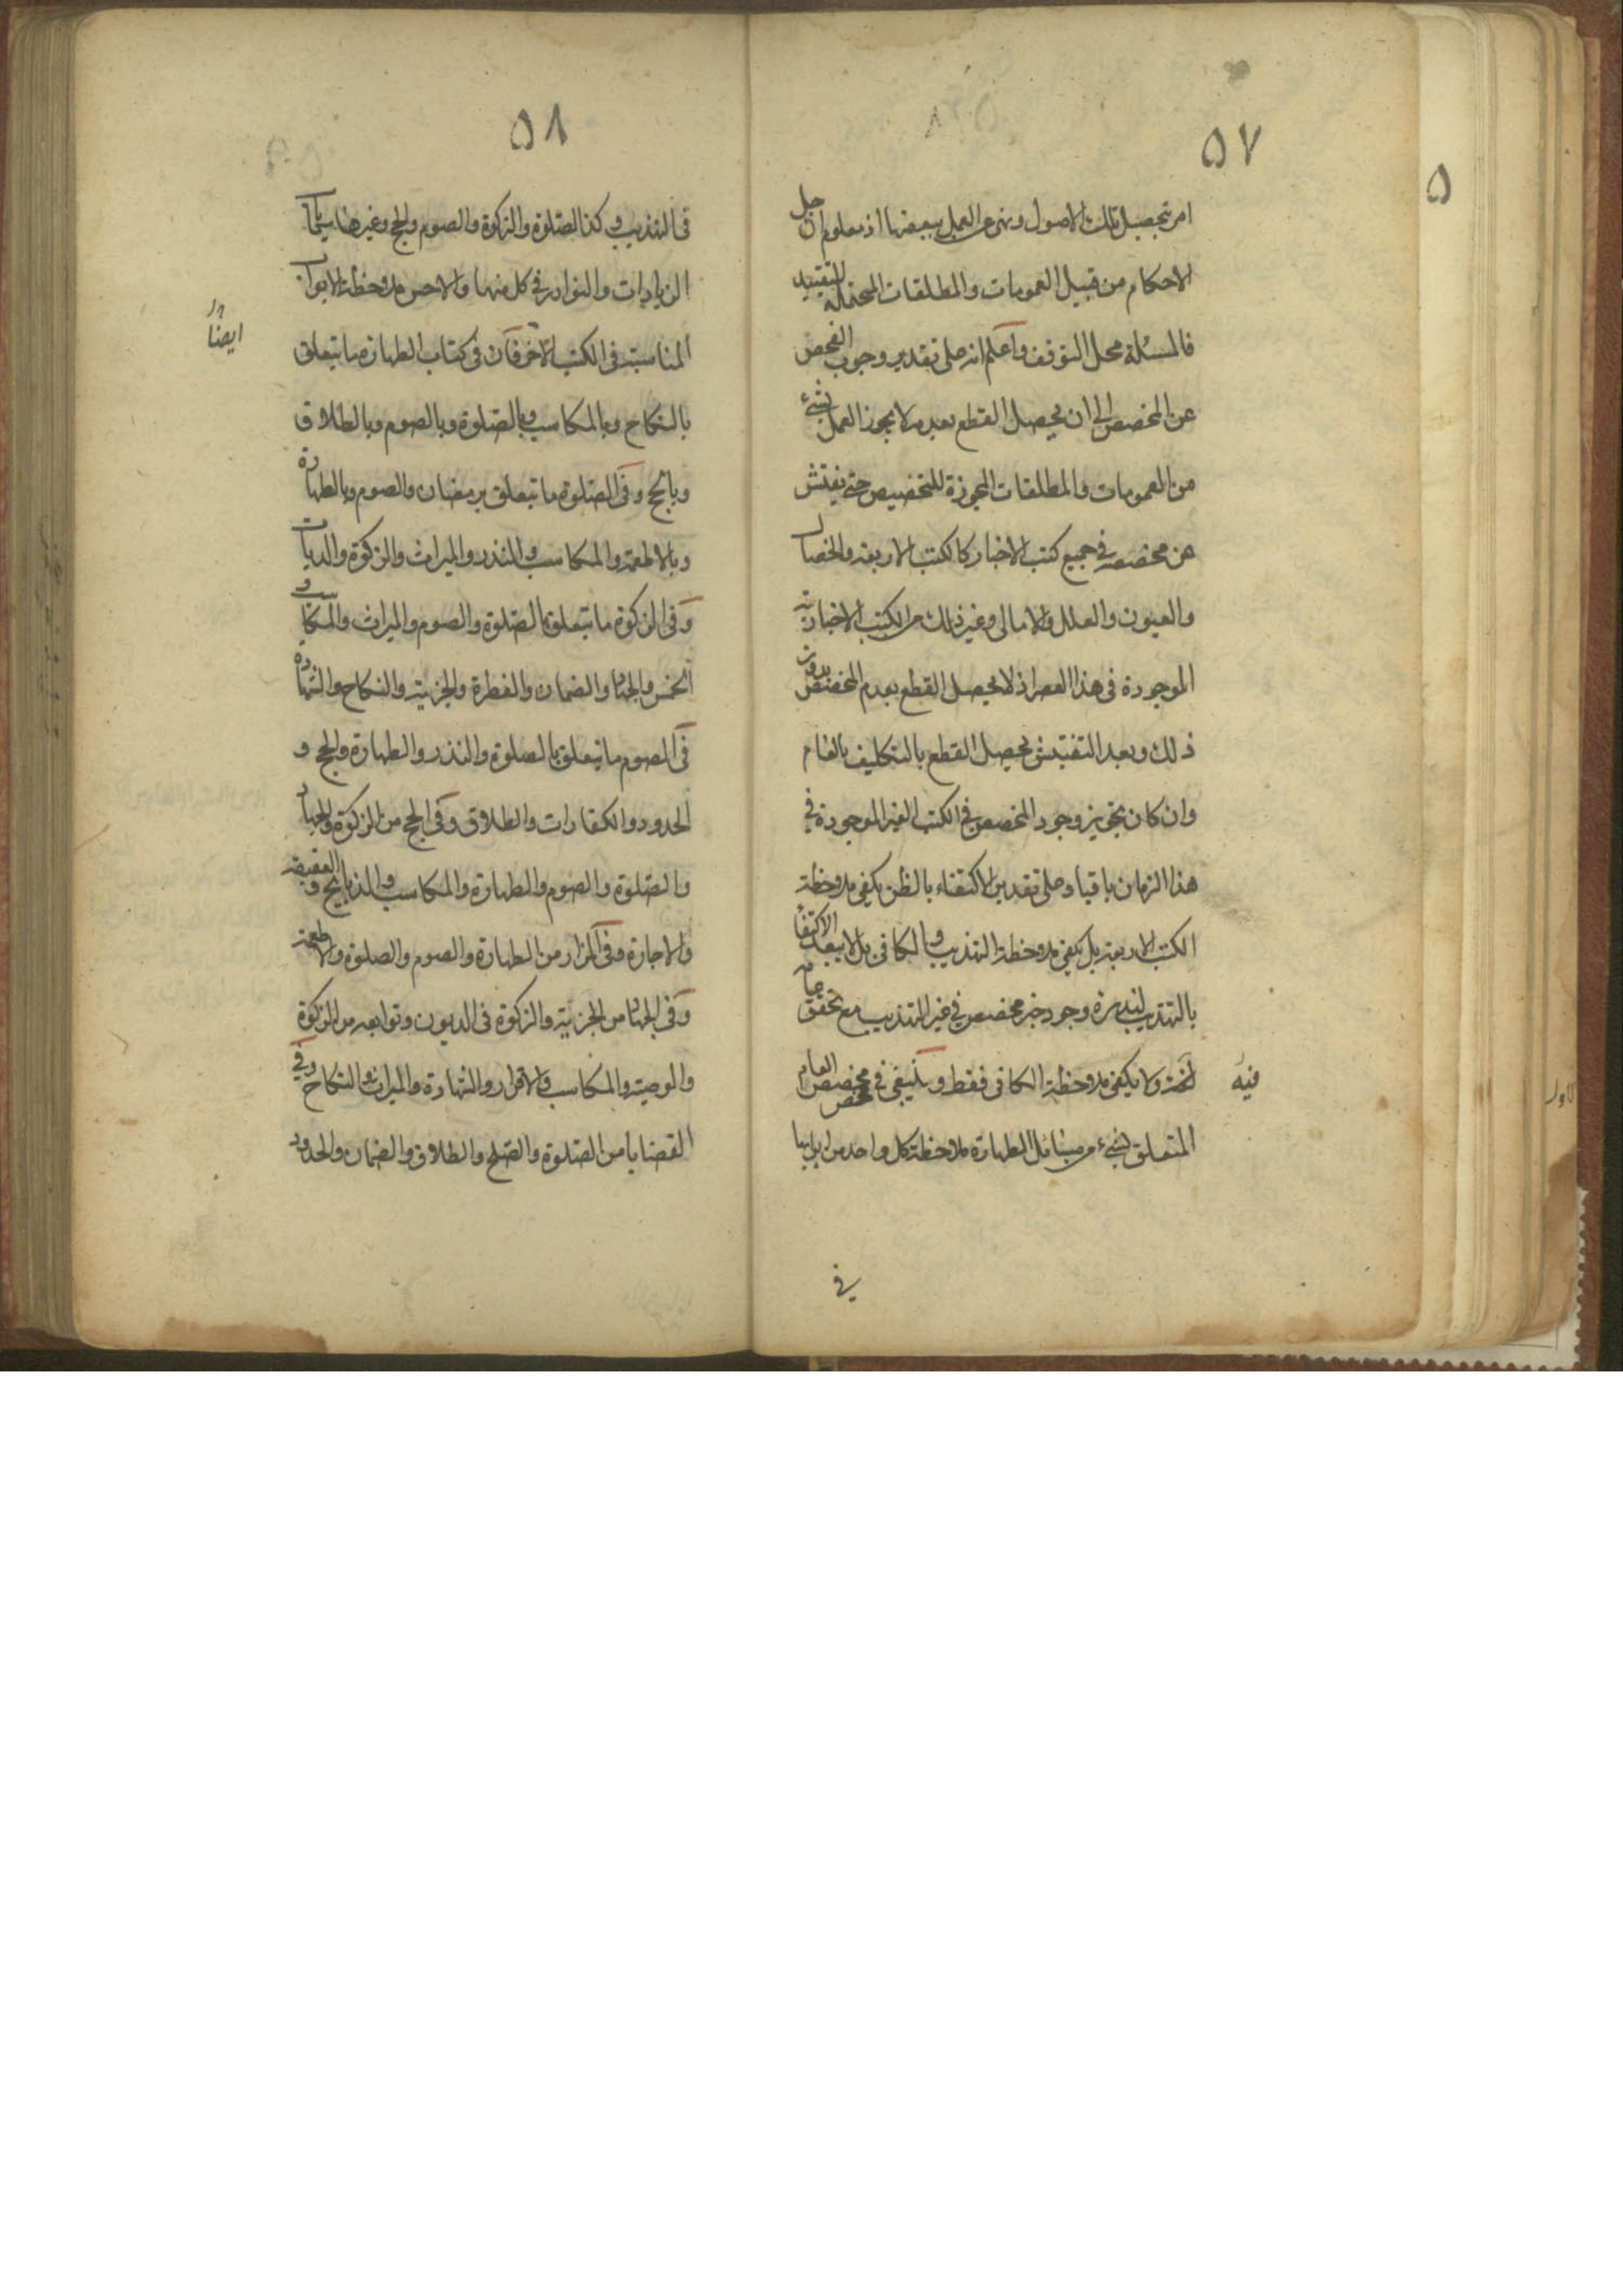 ٥٧
امر بتحصيل تلك الاصول ونهى عن العمل ببعضها اذ معلوم ان جل
الاحكام من قبيل العمومات والمطلقات المحتملة للتقييد
فالمسئلة محل التوقف واعلم انه على تقدير وجوب الفحص
عن المخصص الى ان يحصل القطع بعدمه لا يجوز العمل بشئ
من العمومات والمطلقات المجوزة للتخصيص حتى يفتش
عن مخصصه في جميع كتب الاخبار كالكتب الاربعة والخصال
والعيون والعلل والامالى وغير ذلك من الكتب الاخبارية
الموجودة فى هذا العصر اذ لا يحصل القطع بعدم المخصص بدون
ذلك وبعد التفتيش يحصل القطع بالتكليف بالعام
وان كان تجويز وجود المخصص في الكتب الغير الموجودة في
هذا الزمان باقيا وعلى تقدير الاكتفاء بالظن يكفى ملاحظة
الكتب الاربعة بل يكفى ملاحظة التهذيب والكافى بل لا يبعد الاكتفا
بالتهذيب لندرة وجود خبر مخصص في غير التهذيب مع تحقق عامه
فيه ولا يكفى ملاحظة الكافى فقط وينبغى في مخصص العام
المتعلق بشئ من مسائل الطهارة ملاحظة كل واحد من ابوابها
في
٥٨
فى التهذيب وكذا الصلوة والزكوة والصوم والحج وغيرها سيما
الزيادات والنوادر في كل منها والاحسن ملاحظة الابواب
المناسبة فى الكتب الاخر فان فى كتاب الطهارة ما يتعلق
ايضا
بالنكاح وبالمكاسب وبالصلوة وبالصوم وبالطلاق
وبالحج وفى الصلوة ما يتعلق برمضان والصوم وبالطهارة
وبالاطعمة والمكاسب والنذر والميراث والزكوة والديات
وفى الزكوة ما يتعلق بالصلوة والصوم والميراث والمكاسب و
الخمس والجهاد والضمان والفطرة والجزية والنكاح والشهادة
فى الصوم ما يتعلق بالصلوة والنذر والطهارة والحج و
الحدود والكفارات والطلاق وفى الحج من الزكوة والجهاد
والصلوة والصوم والطهارة والمكاسب والذبايح و العقيقة
والاجارة وفى المزار من الطهارة والصوم والصلوة والاطعمة
وفى الجهاد من الجزية والزكوة فى الديون وتوابعه من الزكوة
والوصية والمكاسب والاقرار والشهادة والميراث والنكاح وفي
القضايا من الصلوة والصلح والطلاق والضمان والحدود